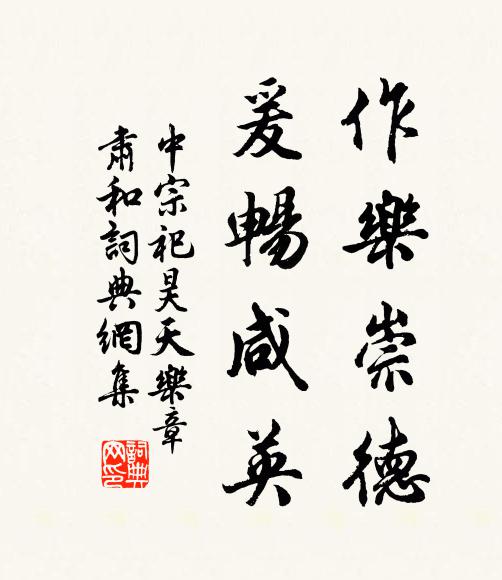 作樂崇德
爰暢咸英
中宗祀昊天樂章
肅和詞典網集
詞典網印